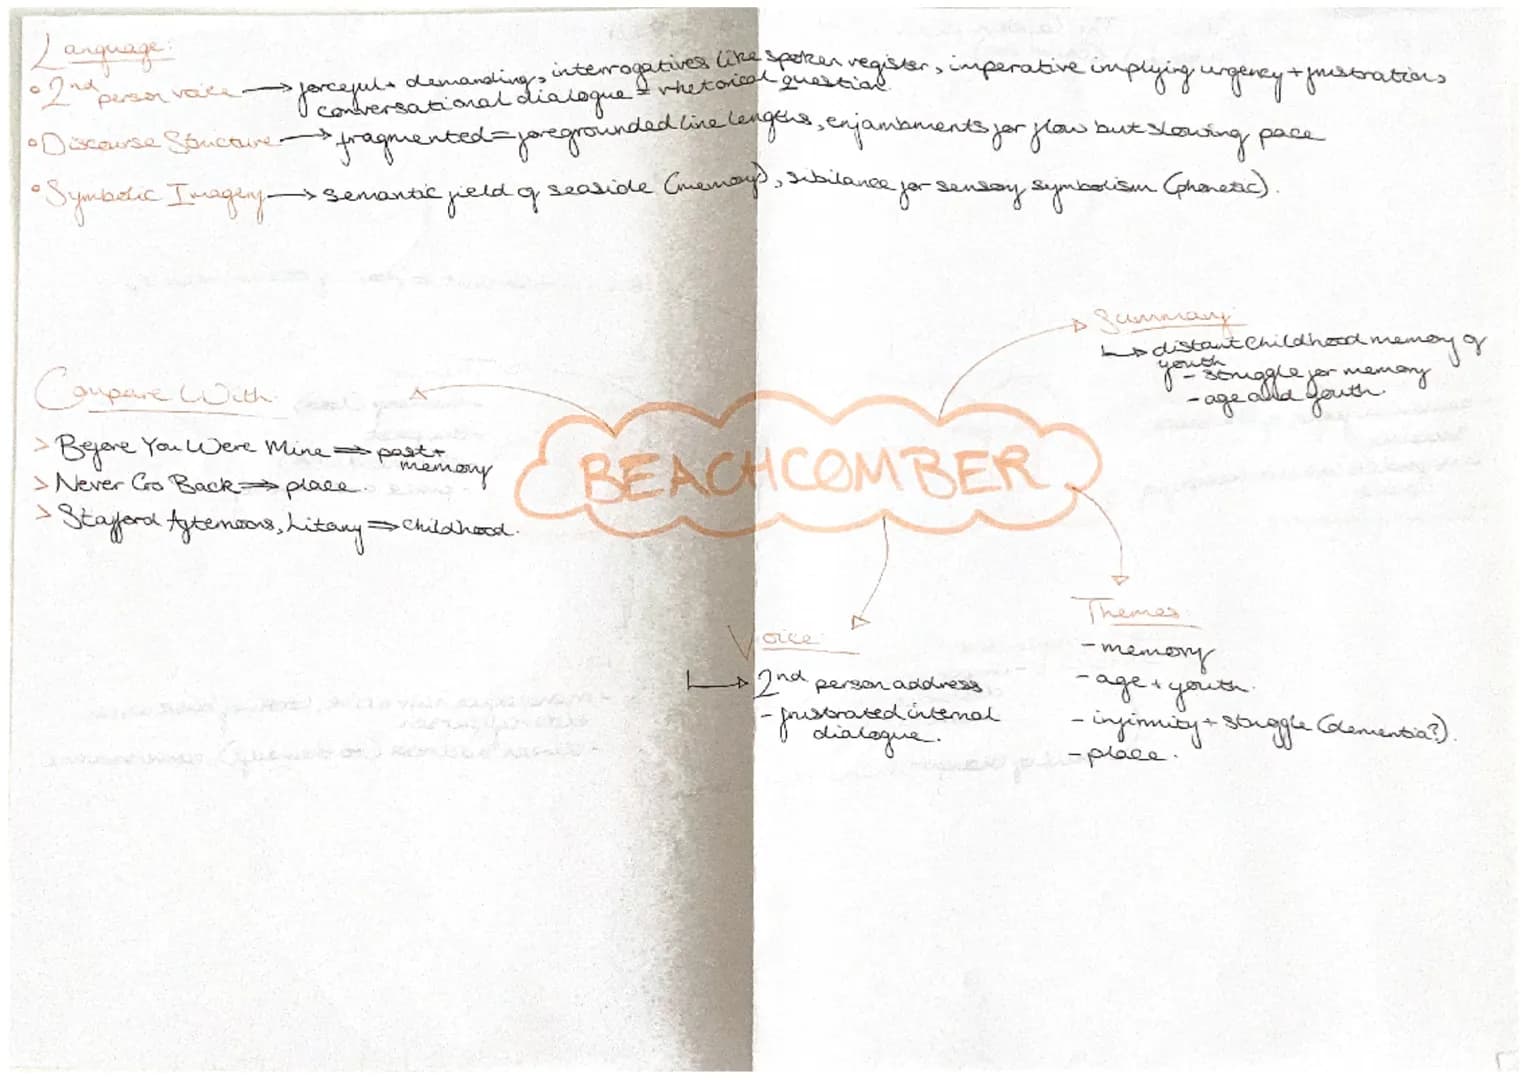 Language:
° 2nd person voice → forceful + demanding, interrogatives like spoken register, imperative implying urgency + frustration,
conversational dialogue = rhetorical question.
° Discourse Structure → fragmented = foregrounded line lengths, enjambments for flow but slowing pace
° Symbolic Imagery → semantic field of seaside (memory), sibilance for sensory symbolism (phonetic).
Summary
↳ distant childhood memory of
youth
- struggle for memory
- age and youth.
Compare With
> Before You Were Mine ⇒ past +
memory
> Never Go Back ⇒ place.
> Stafford Afternoons, Litany ⇒ Childhood.
BEACHCOMBER
Voice
↳ 2nd person address
- frustrated internal
dialogue.
Themes
- memory
- age + youth.
- infirmity + struggle (dementia?).
- place.